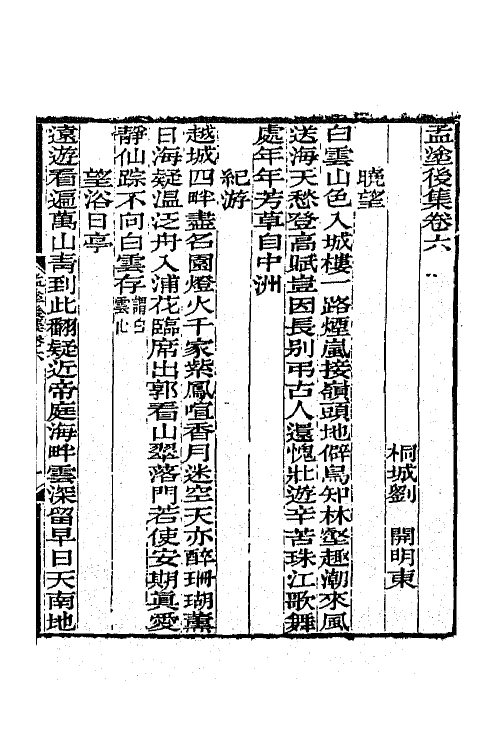 孟塗後集卷六
桐城劉　開明東
曉望
白雲山色入城樓一路煙嵐接嶺頭地僻鳥知林壑趣潮來風
送海天愁登高賦豈因長别弔古人還愧壯遊辛苦珠江歌舞
處年年芳草自中洲
紀游
越城四畔盡名園燈火千家紫鳳喧香月迷空天亦醉珊瑚薰
日海疑溫泛舟入浦花臨席出郭看山翠落門若使安期眞愛
靜仙踪不向白雲存謂白雲山
望浴日亭
遠遊看遍萬山靑到此翻疑近帝庭海畔雲深留早日天南地